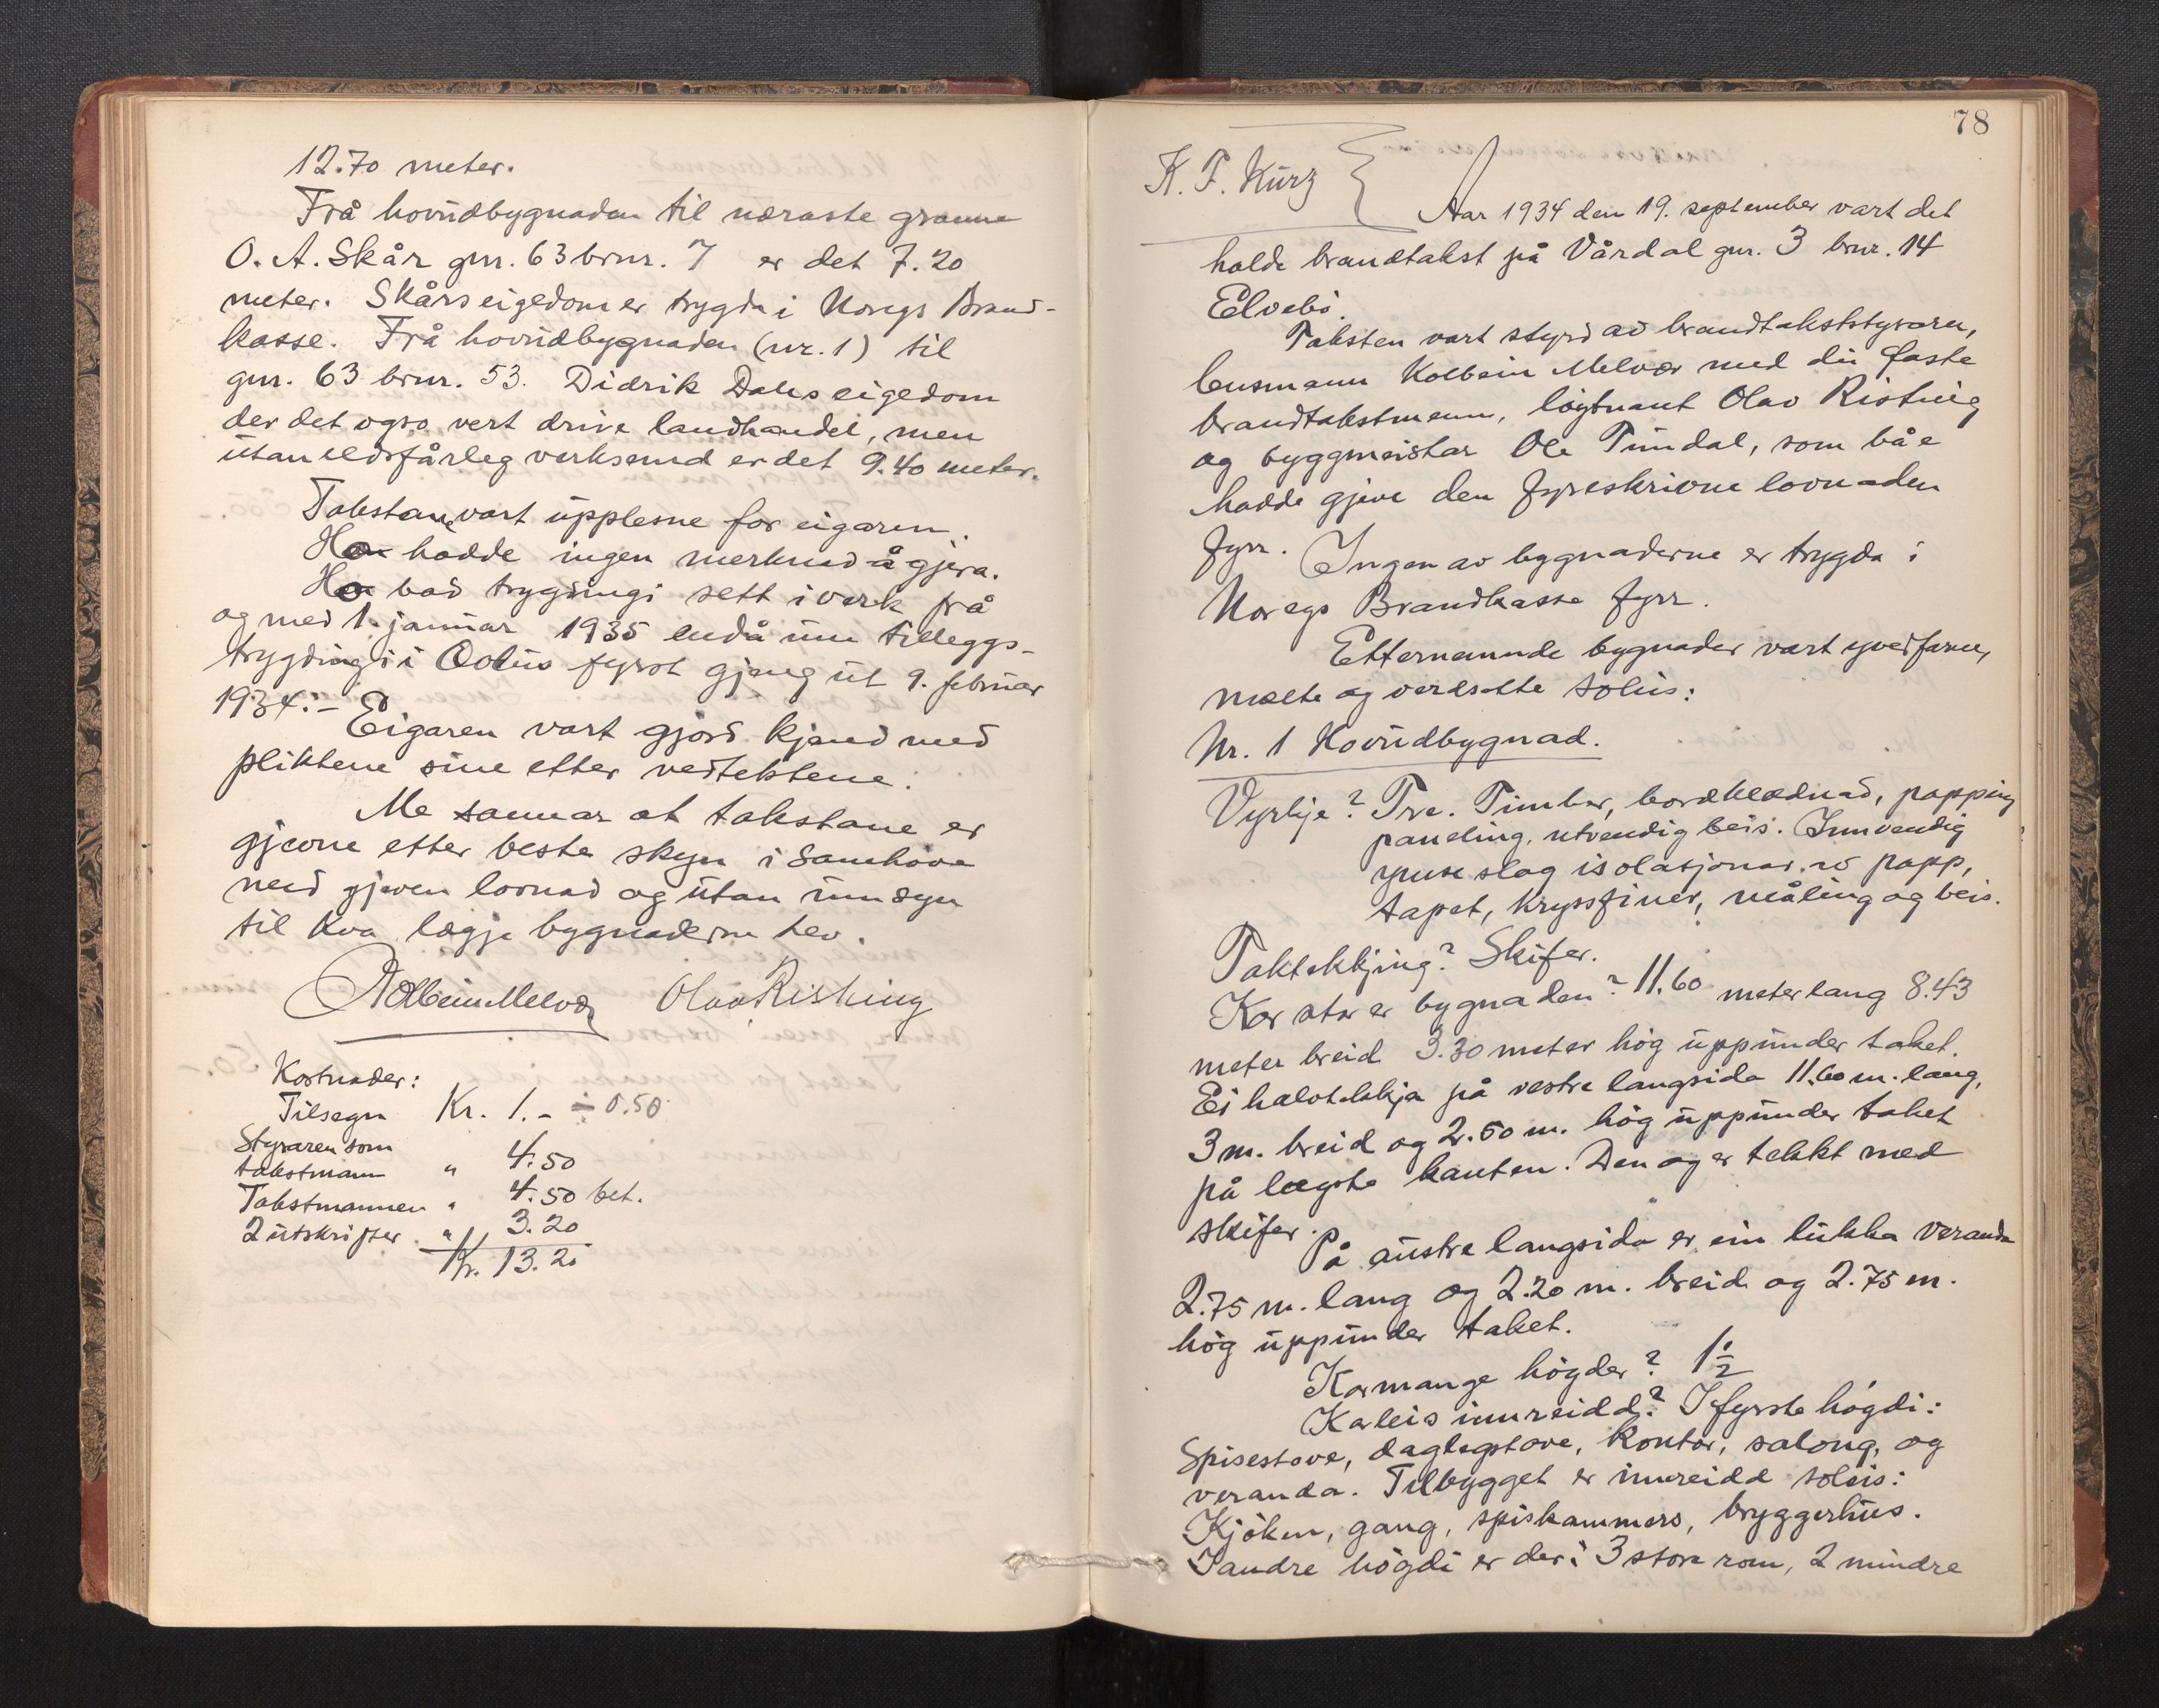 12.70 meter.
Frå hovudbygnaden til næraste granne
O. A. Skår gnr. 63 brnr. 7 er det 7.20
meter. Skårs eigedom er trygda i Noregs Brand-
kasse. Frå hovudbygnaden (nr. 1) til
gnr. 63 brnr. 53. Didrik Dales eigedom
der det ogso vert drive landhandel, men
utan eldsfårleg verksemd er det 9.40 meter.
Takstane vart upplesne for eigaren.
Han hadde ingen merknad å gjera.
Han bad trygdingi sett i verk frå
og med 1. januar 1935 endå um tilleggs-
trygding i fyrst gjeng ut 9. februar
1934.-
Eigaren vart gjord kjend med
pliktene sine etter vedtektene.
Me sannar at takstane er
gjevne etter beste skyn i samhøve
med gjeven lovnad og utan umsyn
til kva lægje bygnaderne hev.
Kolbein Melvær Olav Risting
Kostnader:
Tilsegn Kr. 1.- ÷ 0.50
Styraren som
takstmann " 4.50
Takstmannen " 4.50 bet.
2 utskrifter " 3.20
Kr. 13.20
78
K. F. Kurz
Aar 1934 den 19. september vart det
halde brandtakst på Vårdal gnr. 3 brnr. 14
Elvebø.
Taksten vart styrd av brandtakststyraren,
lensmann Kolbein Melvær med dei faste
brandtakstmenn, løytnant Olav Risting
og byggmeistar Ole Tundal, som båe
hadde gjeve den fyreskrivne lovnaden
fyrr. Ingen av bygnaderne er trygda i
Noregs Brandkasse fyrr.
Etternemnde bygnader vart yverfarne,
mælte og verdsette soleis:
Nr. 1 Hovudbygnad.
Vyrkje? Tre. Timber, bordklædnad, papping
paneling, utvendig beis. Innvendig
ymse slag isolasjonar, so papp,
tapet, kryssfiner, måling og beis.
Taktekkjing? Skifer.
Kor stor er bygnaden? 11.60 meter lang 8.43
meter breid 3.30 meter høg uppunder taket.
Ei halvtekkja på vestre langsida 11.60 m. lang,
3 m. breid og 2.50 m. høg uppunder taket
på lægste kanten. Den og er tekkt med
skifer.
På austre langsida er ein lukka veranda
2.75 m. lang og 2.20 m. breid og 2.75 m.
høg uppunder taket.
Kormange høgder? 1 1/2
Korleis innreidd? I fyrste høgdi:
Spisestove, daglegstove, kontor, salong, og
veranda. Tilbygget er innreidd soleis:
Kjøken, gang, spiskammers, bryggerhus.
I andre høgdi er der: 3 store rom, 2 mindre